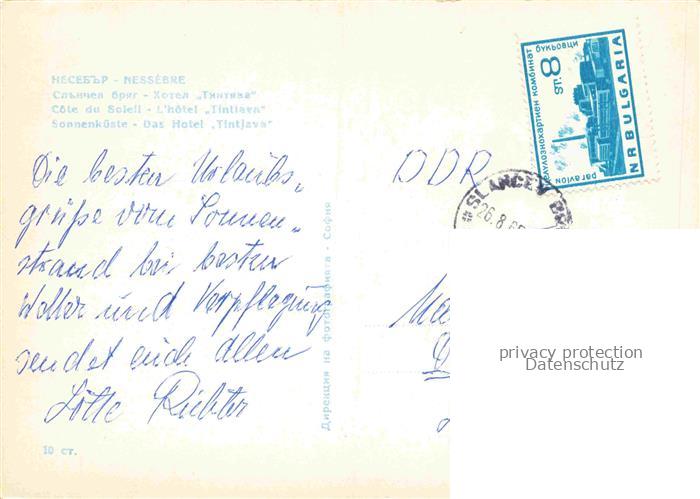 НЕСЕБЪР - NESSÈBRE
Слънчев бряг - Хотел „Тинтява“
Côte du Soleil - L'hôtel „Tintiava“
Sonnenküste - Das Hotel „Tintjava“
Die besten Urlaubs„
grüße vom Sonnen„
strand bei besten
Wetter und Verpflegung
sendet euch allen
Lotte Richter
10 ст.
Дирекция на фотографията - София
DDR
целулознохартиен комбинат
букьовци
8 ст
par avion
N R BULGARIA
SLANCEV
26.8
privacy protection
Datenschutz